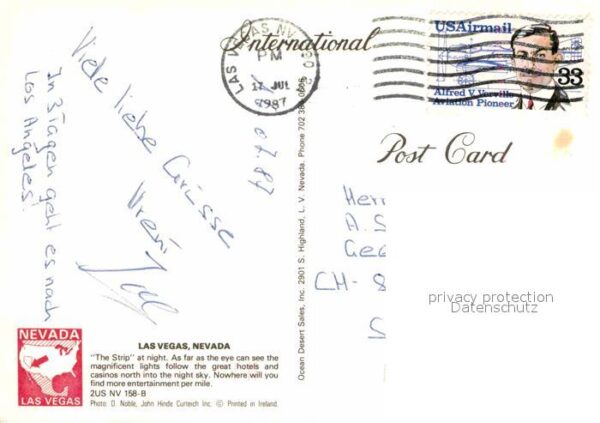 International
Post Card
LAS VEGAS, NV
PM
17 JUL
1987
USAirmail
33
Alfred V. Verville
Aviation Pioneer
07.87
Viele liebe Grüsse
Vreni
In 3 Tagen geht es nach
Los Angeles!
Herr
A. S
Gee
CH-8
privacy protection
Datenschutz
Ocean Desert Sales, Inc. 2901 S. Highland, L. V. Nevada. Phone 702
NEVADA
LAS VEGAS
LAS VEGAS, NEVADA
"The Strip" at night. As far as the eye can see the
magnificent lights follow the great hotels and
casinos north into the night sky. Nowhere will you
find more entertainment per mile.
2US NV 158-B
Photo: D. Noble, John Hinde Curteich Inc. © Printed in Ireland.